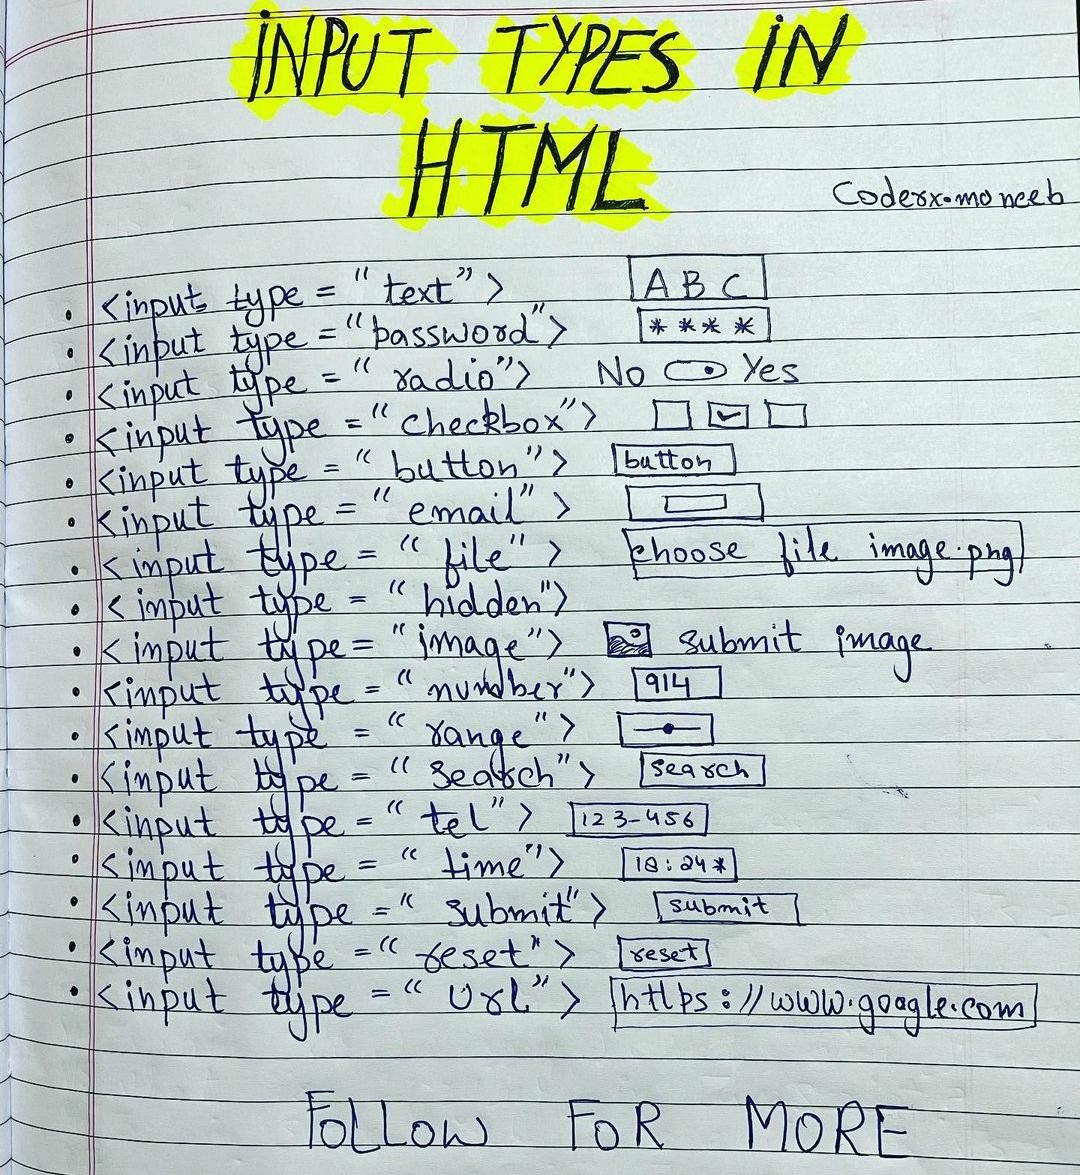 INPUT TYPES IN
HTML
Coderx.moneeb
<input type = "text"> ABC
<input type = "password"> ****
<input type = "radio"> No Yes
<input type = "checkbox">
<input type = "button"> button
<input type = "email">
<input type = "file"> choose file image.png
<input type = "hidden">
<input type = "image"> submit image
<input type = "number"> 914
<input type = "range">
<input type = "search"> search
<input type = "tel"> 123-456
<input type = "time"> 18:24*
<input type = "submit"> submit
<input type = "reset"> reset
<input type = "Url"> https://www.google.com
FOLLOW FOR MORE